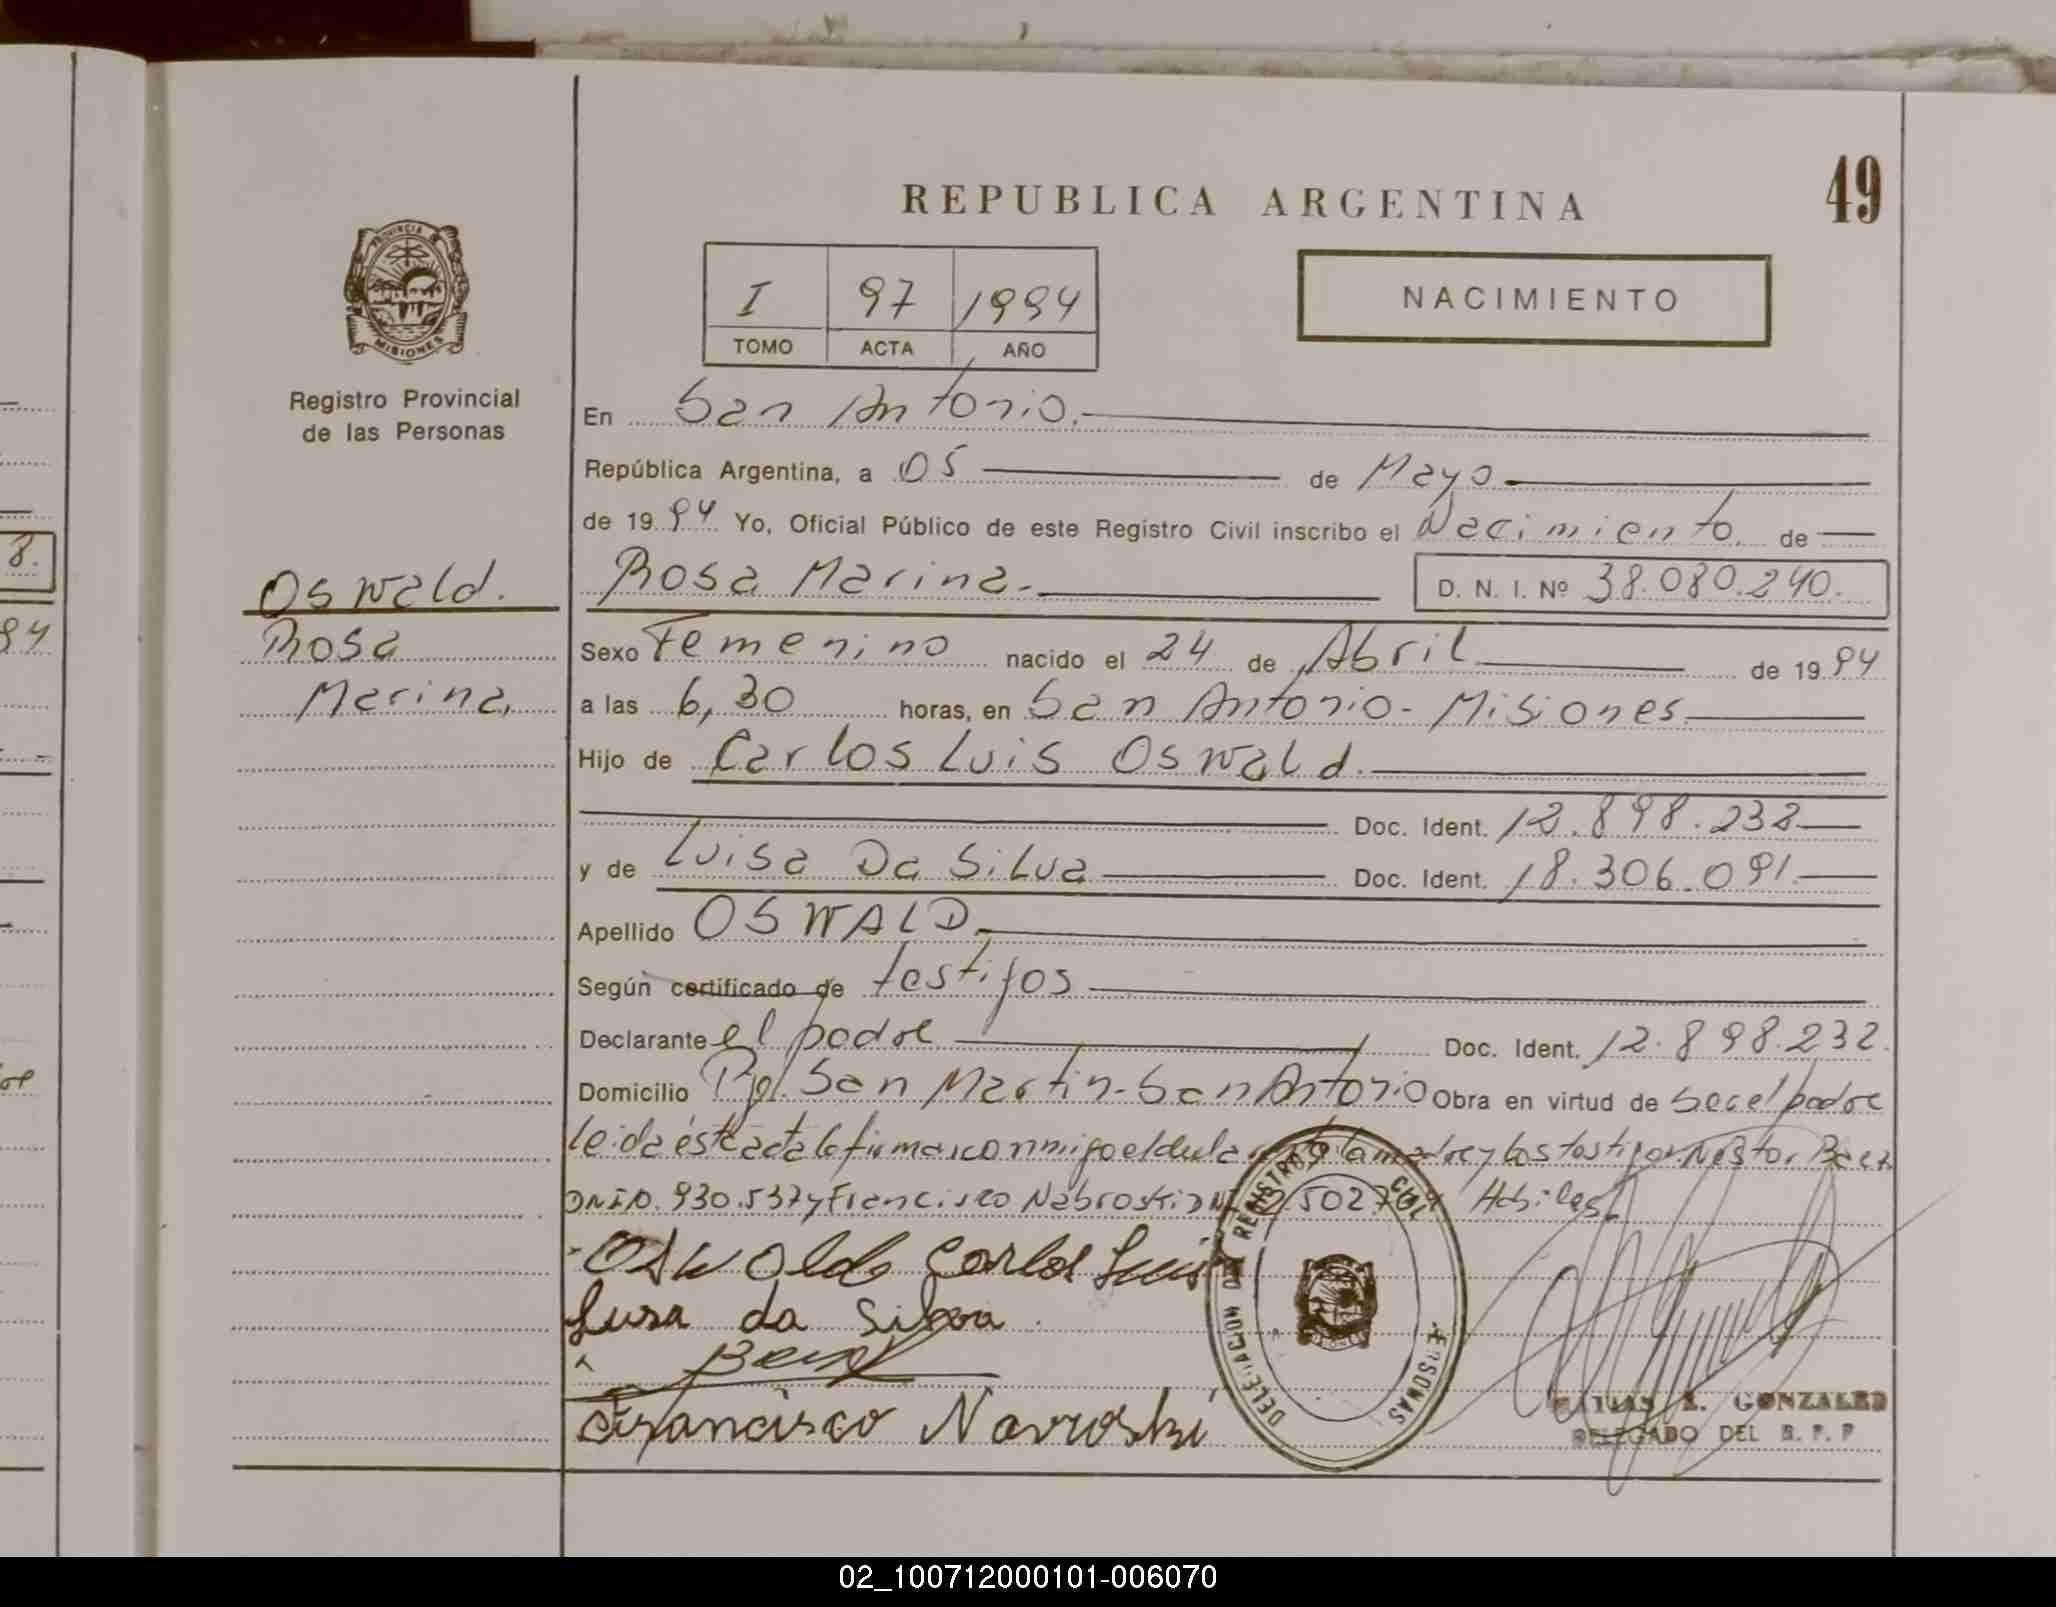 49
REPUBLICA ARGENTINA
NACIMIENTO
I 97 1994
TOMO ACTA AÑO
PROVINCIA DE
MISIONES
Registro Provincial
de las Personas
Oswald.
Rosa
Marina,
En San Antonio.
República Argentina, a 05 de Mayo
de 1994 Yo, Oficial Público de este Registro Civil inscribo el Nacimiento. de
Rosa Marina. D. N. I. Nº 38.080.240.
Sexo Femenino nacido el 24 de Abril de 1994
a las 6,30 horas, en San Antonio - Misiones
Hijo de Carlos Luis Oswald.
Doc. Ident. 12.898.232
y de Luisa Da Silva Doc. Ident. 18.306.091.
Apellido OSWALD.
Según certificado de testigos
Declarante el padre Doc. Ident. 12.898.232.
Domicilio Pje. San Martin - San Antonio Obra en virtud de ser el padre
leida ésta acta la firma conmigo el la madre y los testigos Nestor Baez
DNI 930.537 y Francisco Nabroski Habiles
Oswaldo Carlos Luis
Luisa da Silva
Francisco Navroski
DELEGACION DEL REGISTRO CIVIL
PERSONAS
MISIONES
GONZALEZ
DELEGADO DEL R. P. P
8.
94
02_100712000101-006070